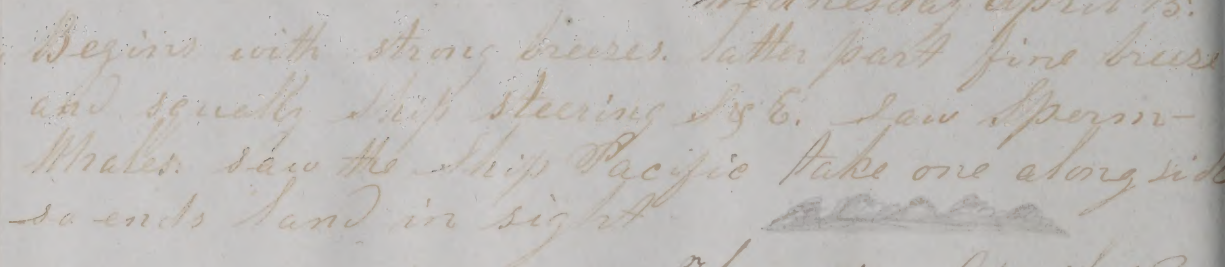 Wednesday April 15.
Begins with strong breezes. latter part fine breeze
and squally Ship steering S & E. Saw Sperm-
Whales. saw the Ship Pacific take one along side
so ends land in sight